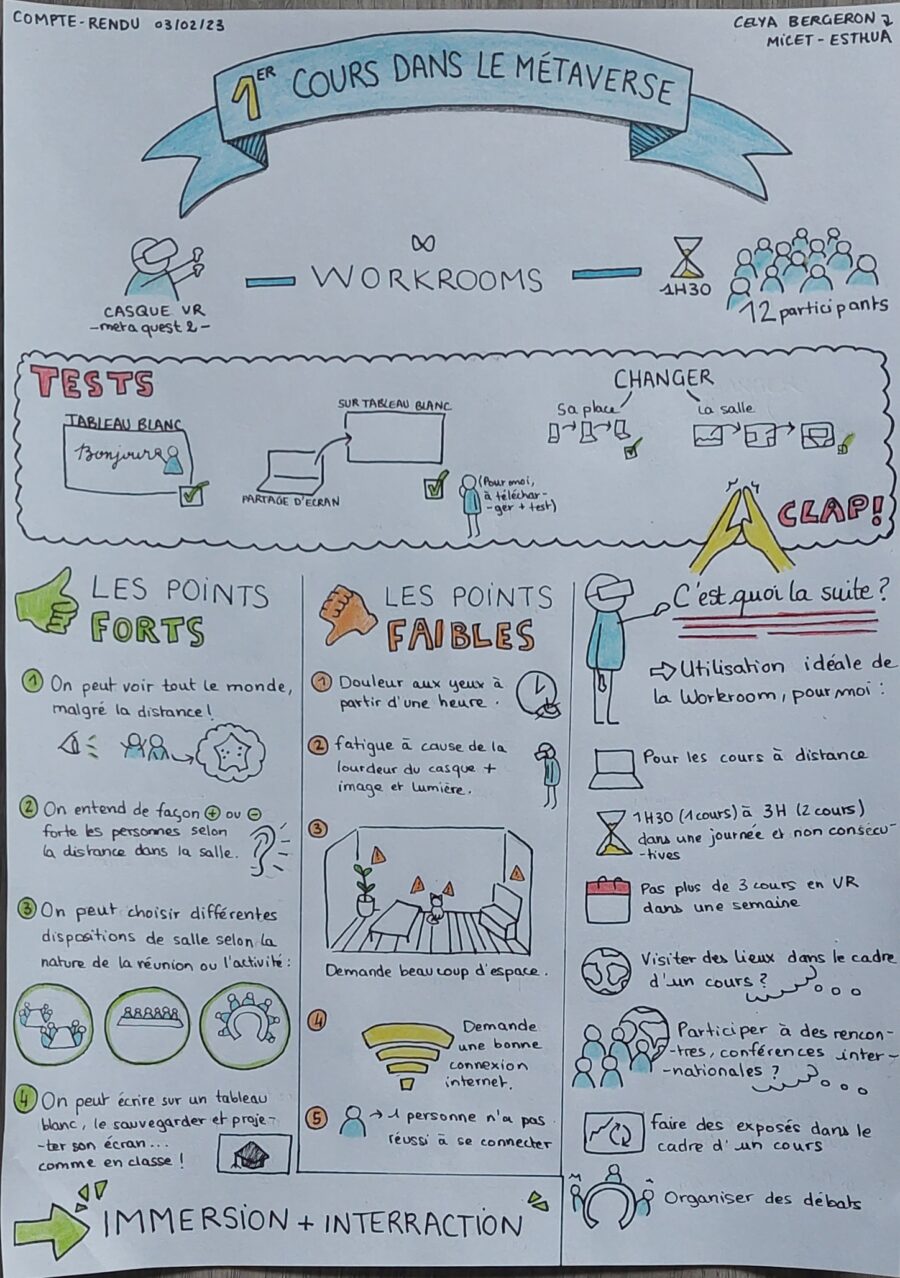 COMPTE-RENDU 03/02/23
CELYA BERGERON
MICET - ESTHUA
1ER COURS DANS LE MÉTAVERSE
CASQUE VR
- meta quest 2 -
WORKROOMS
1H30
12 participants
TESTS
TABLEAU BLANC
Bonjour
SUR TABLEAU BLANC
PARTAGE D'ECRAN
(Pour moi,
à téléchar-
-ger + test)
CHANGER
Sa place
La salle
CLAP!
LES POINTS
FORTS
1 On peut voir tout le monde,
malgré la distance !
2 On entend de façon + ou -
forte les personnes selon
la distance dans la salle.
3 On peut choisir différentes
dispositions de salle selon la
nature de la réunion ou l'activité :
4 On peut écrire sur un tableau
blanc, le sauvegarder et proje-
-ter son écran...
comme en classe !
LES POINTS
FAIBLES
1 Douleur aux yeux à
partir d'une heure.
2 fatigue à cause de la
lourdeur du casque +
image et lumière.
3
Demande beaucoup d'espace.
4 Demande
une bonne
connexion
internet.
5 → 1 personne n'a pas
réussi à se connecter
C'est quoi la suite ?
⇒ Utilisation idéale de
la Workroom, pour moi :
Pour les cours à distance
1H30 (1 cours) à 3H (2 cours)
dans une journée et non consécu-
-tives
Pas plus de 3 cours en VR
dans une semaine
Visiter des lieux dans le cadre
d'un cours ?
Participer à des rencon-
-tres, conférences inter-
-nationales ?
faire des exposés dans le
cadre d'un cours
Organiser des débats
IMMERSION + INTERRACTION